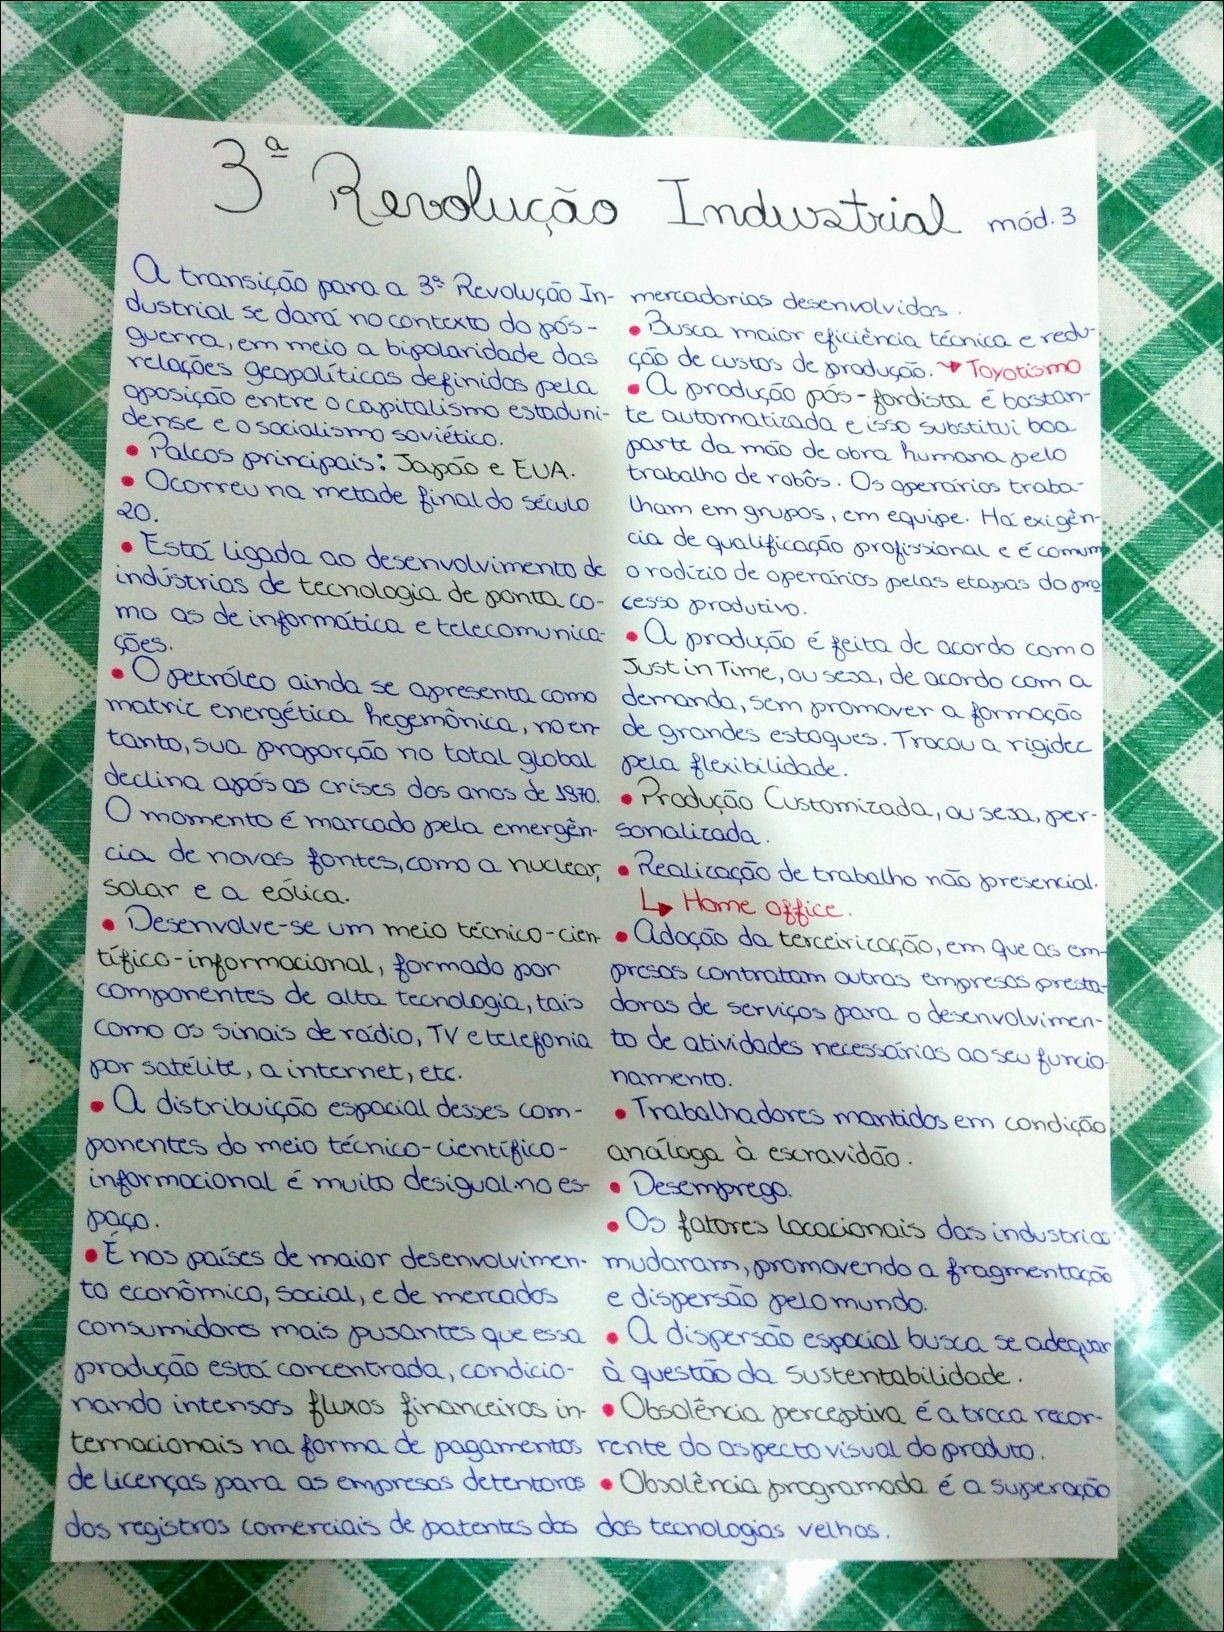 3ª Revolução Industrial mód. 3
A transição para a 3ª Revolução In-
dustrial se dará no contexto do pós-
guerra, em meio a bipolaridade das
relações geopolíticas definidas pela
oposição entre o capitalismo estaduni-
dense e o socialismo soviético.
• Palcos principais: Japão e EUA.
• Ocorreu na metade final do século
20.
• Está ligada ao desenvolvimento de
indústrias de tecnologia de ponta co-
mo as de informática e telecomunica-
ções.
• O petróleo ainda se apresenta como
matriz energética hegemônica, no en-
tanto, sua proporção no total global
declina após as crises dos anos de 1970.
O momento é marcado pela emergên-
cia de novas fontes, como a nuclear,
solar e a eólica.
• Desenvolve-se um meio técnico-cien-
tífico-informacional, formado por
componentes de alta tecnologia, tais
como os sinais de rádio, TV e telefonia
por satélite, a internet, etc.
• A distribuição espacial desses com-
ponentes do meio técnico-científico-
informacional é muito desigual no es-
paço.
• É nos países de maior desenvolvimen-
to econômico, social, e de mercados
consumidores mais pusantes que essa
produção está concentrada, condicio-
nando intensos fluxos financeiros in-
ternacionais na forma de pagamentos
de licenças para as empresas detentoras
dos registros comerciais de patentes das
mercadorias desenvolvidas.
• Busca maior eficiência técnica e redu-
ção de custos de produção. → Toyotismo
• A produção pós-fordista é bastan-
te automatizada e isso substitui boa
parte da mão de obra humana pelo
trabalho de robôs. Os operários traba-
lham em grupos, em equipe. Há exigên-
cia de qualificação profissional e é comum
o rodízio de operários pelas etapas do pro
cesso produtivo.
• A produção é feita de acordo com o
Just in Time, ou seja, de acordo com a
demanda, sem promover a formação
de grandes estoques. Trocou a rigidez
pela flexibilidade.
• Produção Customizada, ou seja, per-
sonalizada.
• Realização de trabalho não presencial.
↳ Home office.
• Adoção da terceirização, em que as em-
presas contratam outras empresas presta-
doras de serviços para o desenvolvimen-
to de atividades necessárias ao seu funcio-
namento.
• Trabalhadores mantidos em condição
análoga à escravidão.
• Desemprego.
• Os fatores locacionais das industrias
mudaram, promovendo a fragmentação
e dispersão pelo mundo.
• A dispersão espacial busca se adequar
à questão da sustentabilidade.
• Obsolência perceptiva é a troca recor-
rente do aspecto visual do produto.
• Obsolência programada é a superação
das tecnologias velhas.